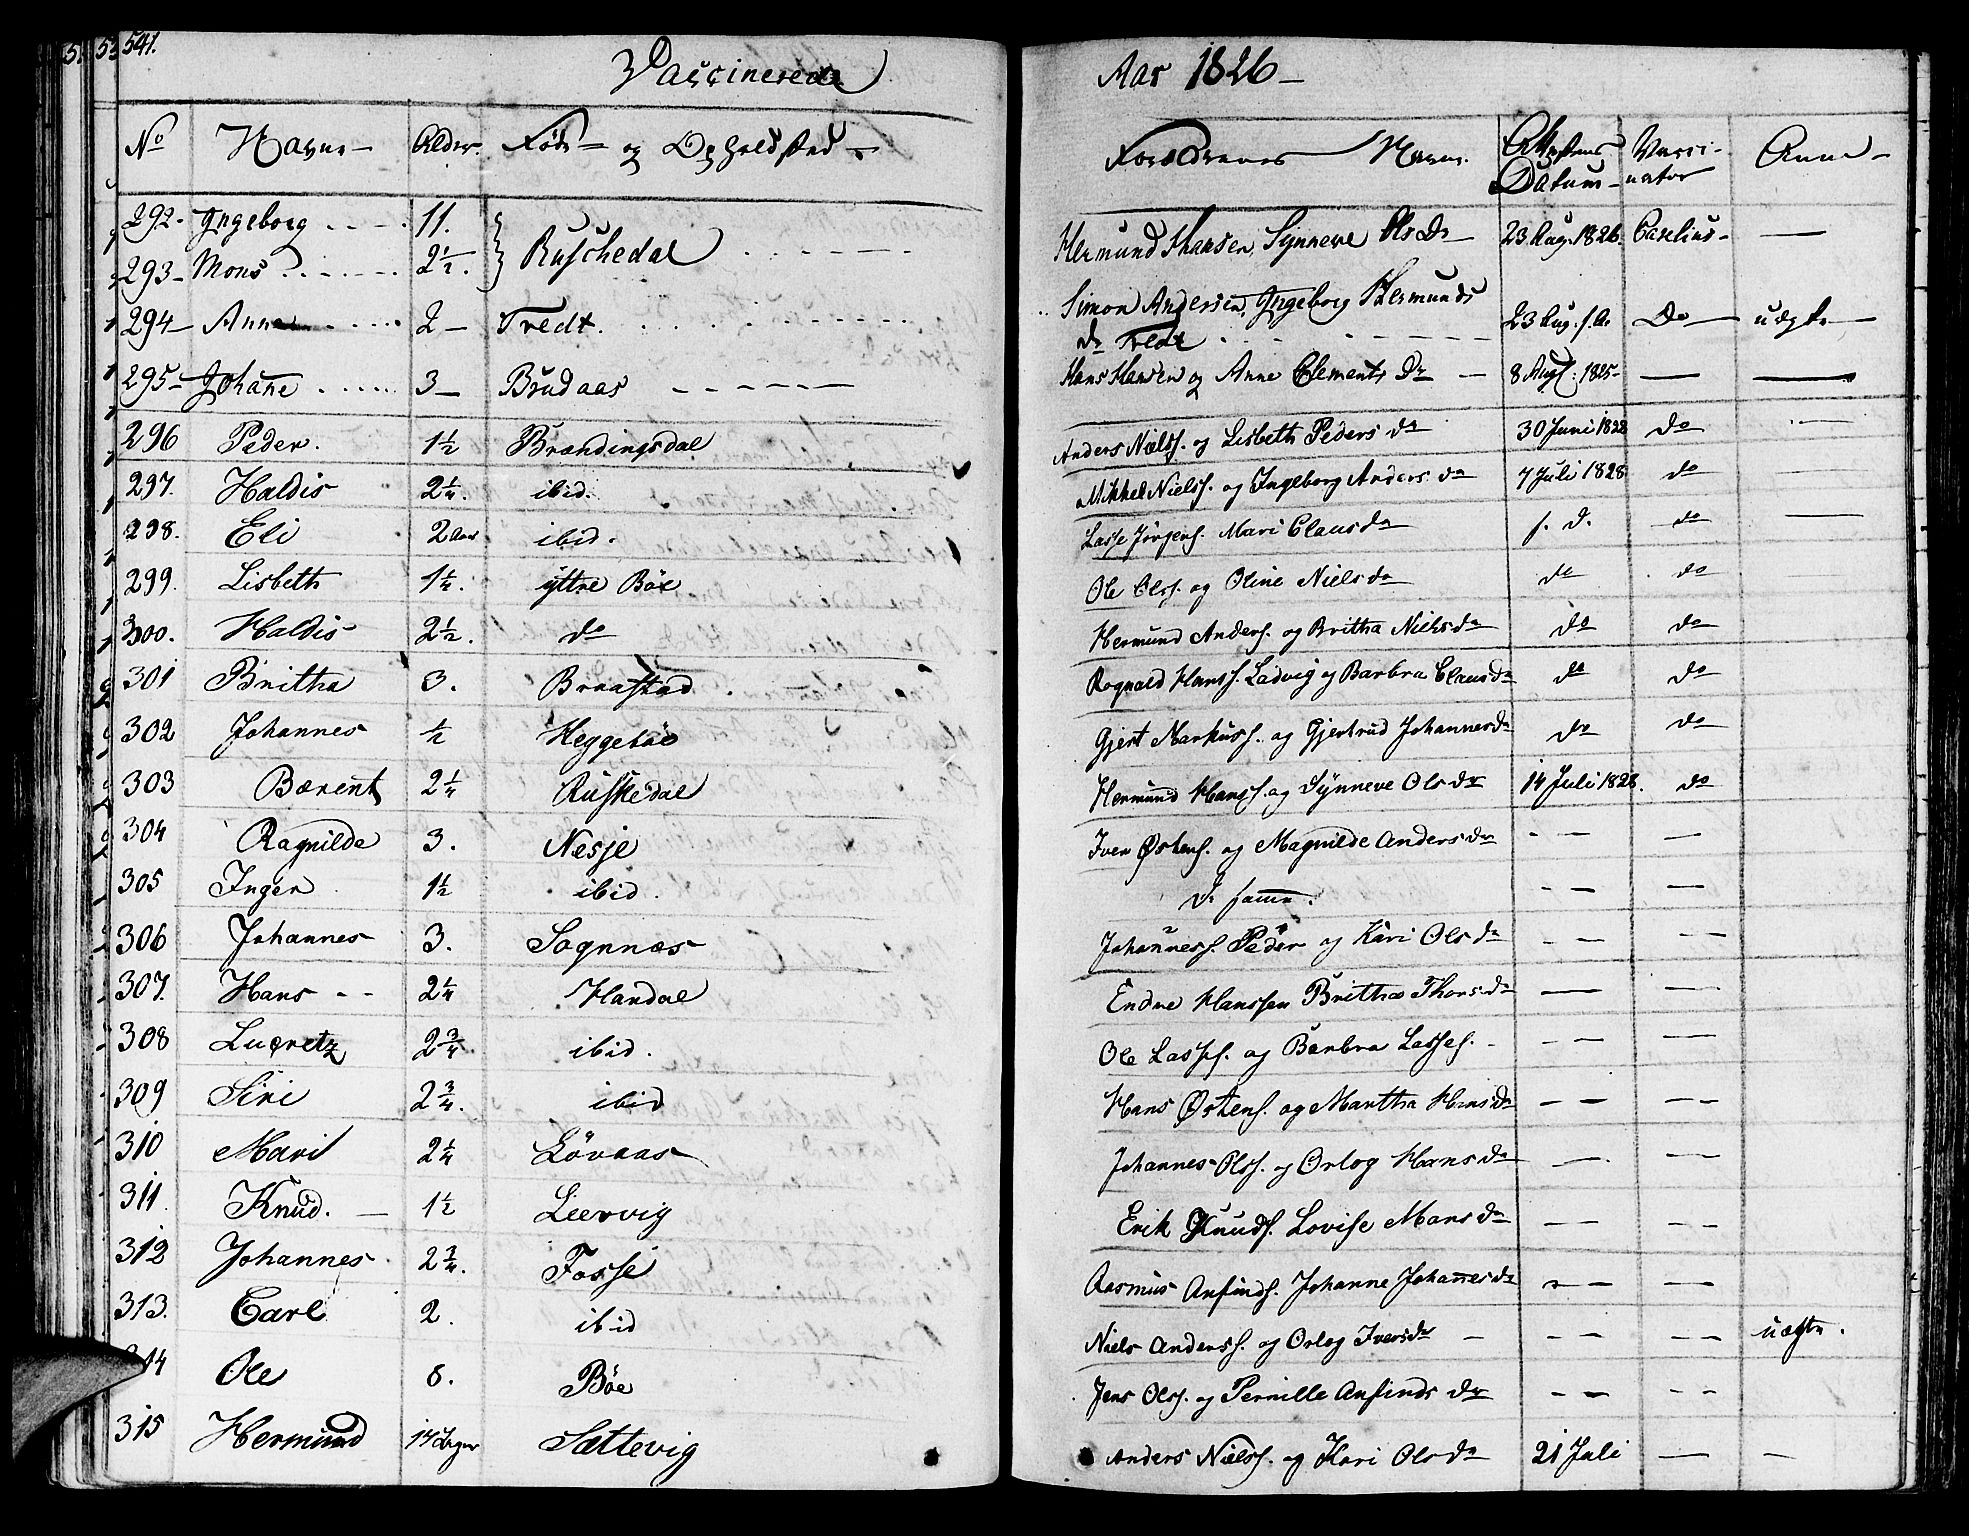 541.
Vaccinerede
Aar 1826 –
No Navne – Alder. Føde – og Opholdsted –
Forældrenes Navne. Attestens Datum – Vacci-nator Anm –
292 – Ingeborg 11. Ruschedal Hermund Hansen, Synneve Ols Dr 23 Aug. 1826. Caselius – —
293 – Mons 2½.
294 – Anne 2 – Tredt. Simon Andersen, Ingeborg Hermunds
Dr Tredt 23 Aug. s. A. Do – uægte —
295 – Johañe 3 – Brudaas Hans Hansen og Anne Clements Dr – 8 Augt. 1825 – — —
296 Peder. 1½ Brændingsdal Anders Nielss. og Lisbeth Peders da 30 Juni 1828 do —
297. Haldis 2¼. ibid. Mikkel Nielss. og Ingeborg Anders. da 7 Juli 1828 do —
298. Eli 2 Aar ibid. Lasse Jörgens. Mari Claus da s. d. do —
299. Lisbeth 1¼. ÿttre Böe Ole Olss. og Oline Niels da do do
300. Haldis 2½. do Hermund Anders. og Britha Niels da do do
301 Britha 3. Braastad Rognald Hanss. Ladvig og Barbra Claus da do do
302 Johannes ½ Heggeböe Gjert Markuss. og Gjertrud Johannes da do do
303 Bærent 2¼ Ruskedal Hermund Hanss. og Synneve Ols da 14 Juli 1828. do
304 Ragnilde 3. Nesje Iver Østens. og Magnilde Anders da – — —
305 Inger 1½ ibid. de samme. – — —
306 Johannes 3. Sognnæs Johañess. Peder og Kari Ols da – — – —
307. Hans – – 2¼ Handal Endre Hanssen Britha Thors da — — – —
308 Lucretz 2¾. ibid. Ole Lasses. og Barbra Lasses. – – — – —
309 Siri 2¾. ibid Hans Østens. og Martha Hans da – — – —
310 Mari 2¼ Lövaas Johannes Olss. og Orlog Hans da — — – —
311 Knud. — 1½ Leervig Erik Knuds. Lovise Mons da – — – —
312 Johannes 2¾. Fosse Rasmus Anfinds. Johanne Johañes da – — —
313. Carl 2. ibid Niels Anderss. og Orlog Ivers da – – — – — uægte.
314 Ole 8. Böe Jens Olss. og Pernille Anfinds da – — – —
315 Hermund 14 Dager Sættevig Anders Nielss. og Kari Ols da 21 Juli — –